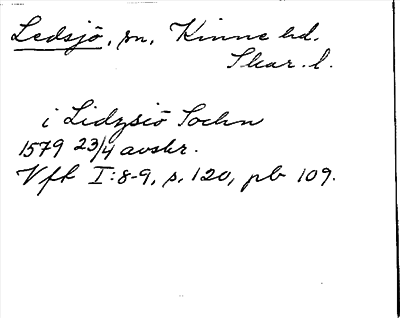 Ledsjö, sn, Kinne hd.
Skar. l.
i Lidzsiö Sochn
1579 23/4 avskr.
Vfk I:8-9, s. 120, pb 109.